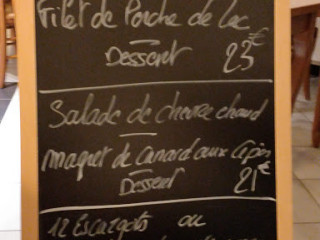 Filet de Perche de Lac
Dessert 23€
Salade de chevre chaud
magret de canard aux cèpes
Dessert 21€
12 Escargots ou